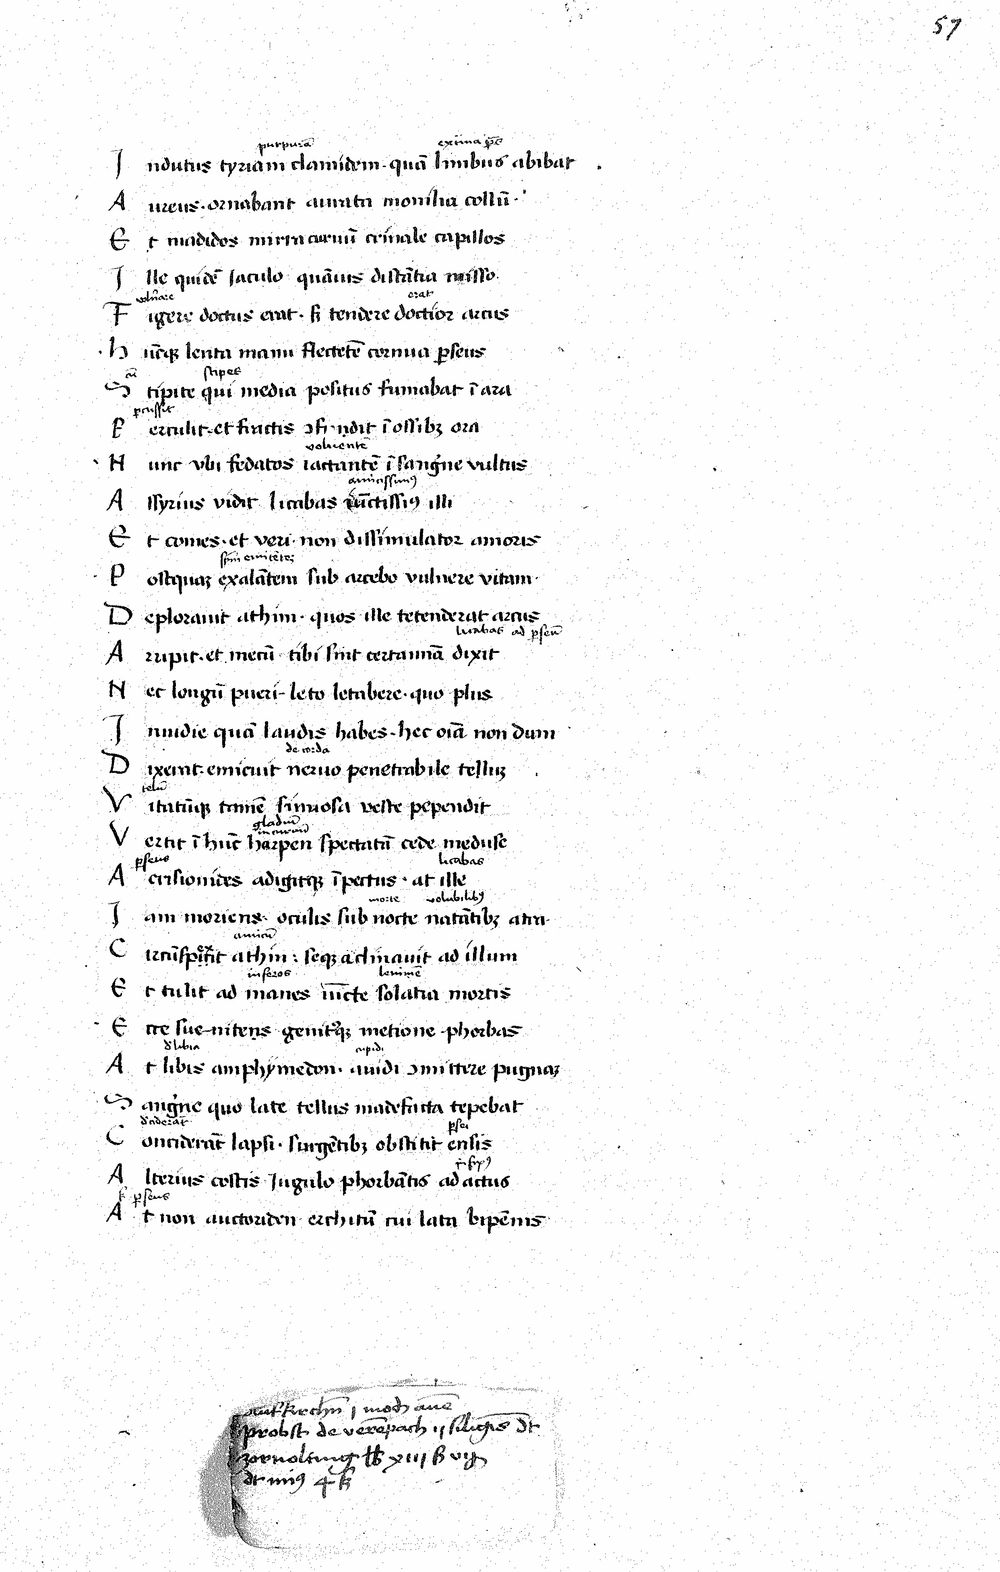 57
purpurā extima ꝑs
Indutus tyriam clamidem · quā limbus abibat
Aureus · ornabant aurata monilia collū ·
Et madidos mirra curuū crinale capillos
Ille quidē Iaculo quāuis distātia misso
vulnerare erat
Figere doctus erat · ſʒ tendere doctior arcus
hūcqʒ lenta manu flectētē cornua ꝑseus
cū stipes
Stipite qui media positus fumabat ī ara
ꝑcussit
Perculit · et fractis ɔfundit ī ossibʒ ora
voluentē
Hunc vbi fedatos iactantē ī sangīne vultus
amicissimꝰ
Assyrius vidit licabas iūctissimꝰ illi
Et comes · et veri · non dissimulator amoris
spm̄ emittētē
Postquaʒ exalātem sub acerbo vulnere vitam ·
Deplorauit athim · quos ille tetenderat arcus
licabas ad ꝑseū
Arripit · et mecū tibi sint certamīa dixit
Nec longū pueri leto letabere · quo plus
Inuidie quā laudis habes · hec oīa non dum
de corda
Dixerat · emicuit neruo penetrabile telluʒ
telū
Vitatūqʒ tamē sinuosa veste pependit
gladiū
incuruū
Vertit ī hūc harpen spectatā cede meduse
ꝑseus licabas
Acrisionides adigitqʒ ī pectus · at ille
morte volubilibꝰ
Iam moriens · oculis sub nocte natātibʒ atra
amicū
Circūspexit athin : seqʒ aclinauit ad illum
inferos leuimē
Et tulit ad manes iūcte solatia mortis
Ecce sue nitens genitꝰqʒ metione phorbas
d̄ libia cupidi
At libis amphymedon · auidi ɔmittere pugnaʒ
Sangīne quo late tellus madefacta tepebat
ꝑsei
Conciderāt lapsi · surgētibʒ obstitit ensis
Alterius costis Iugulo phorbātis adactus
ſʒ ꝑseus
At non auctoriden erchitū cui lata bipēnis
probst de